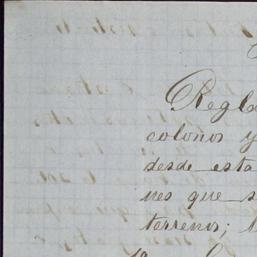 Regla
colonos y
desde esta
nes que s
terreno;